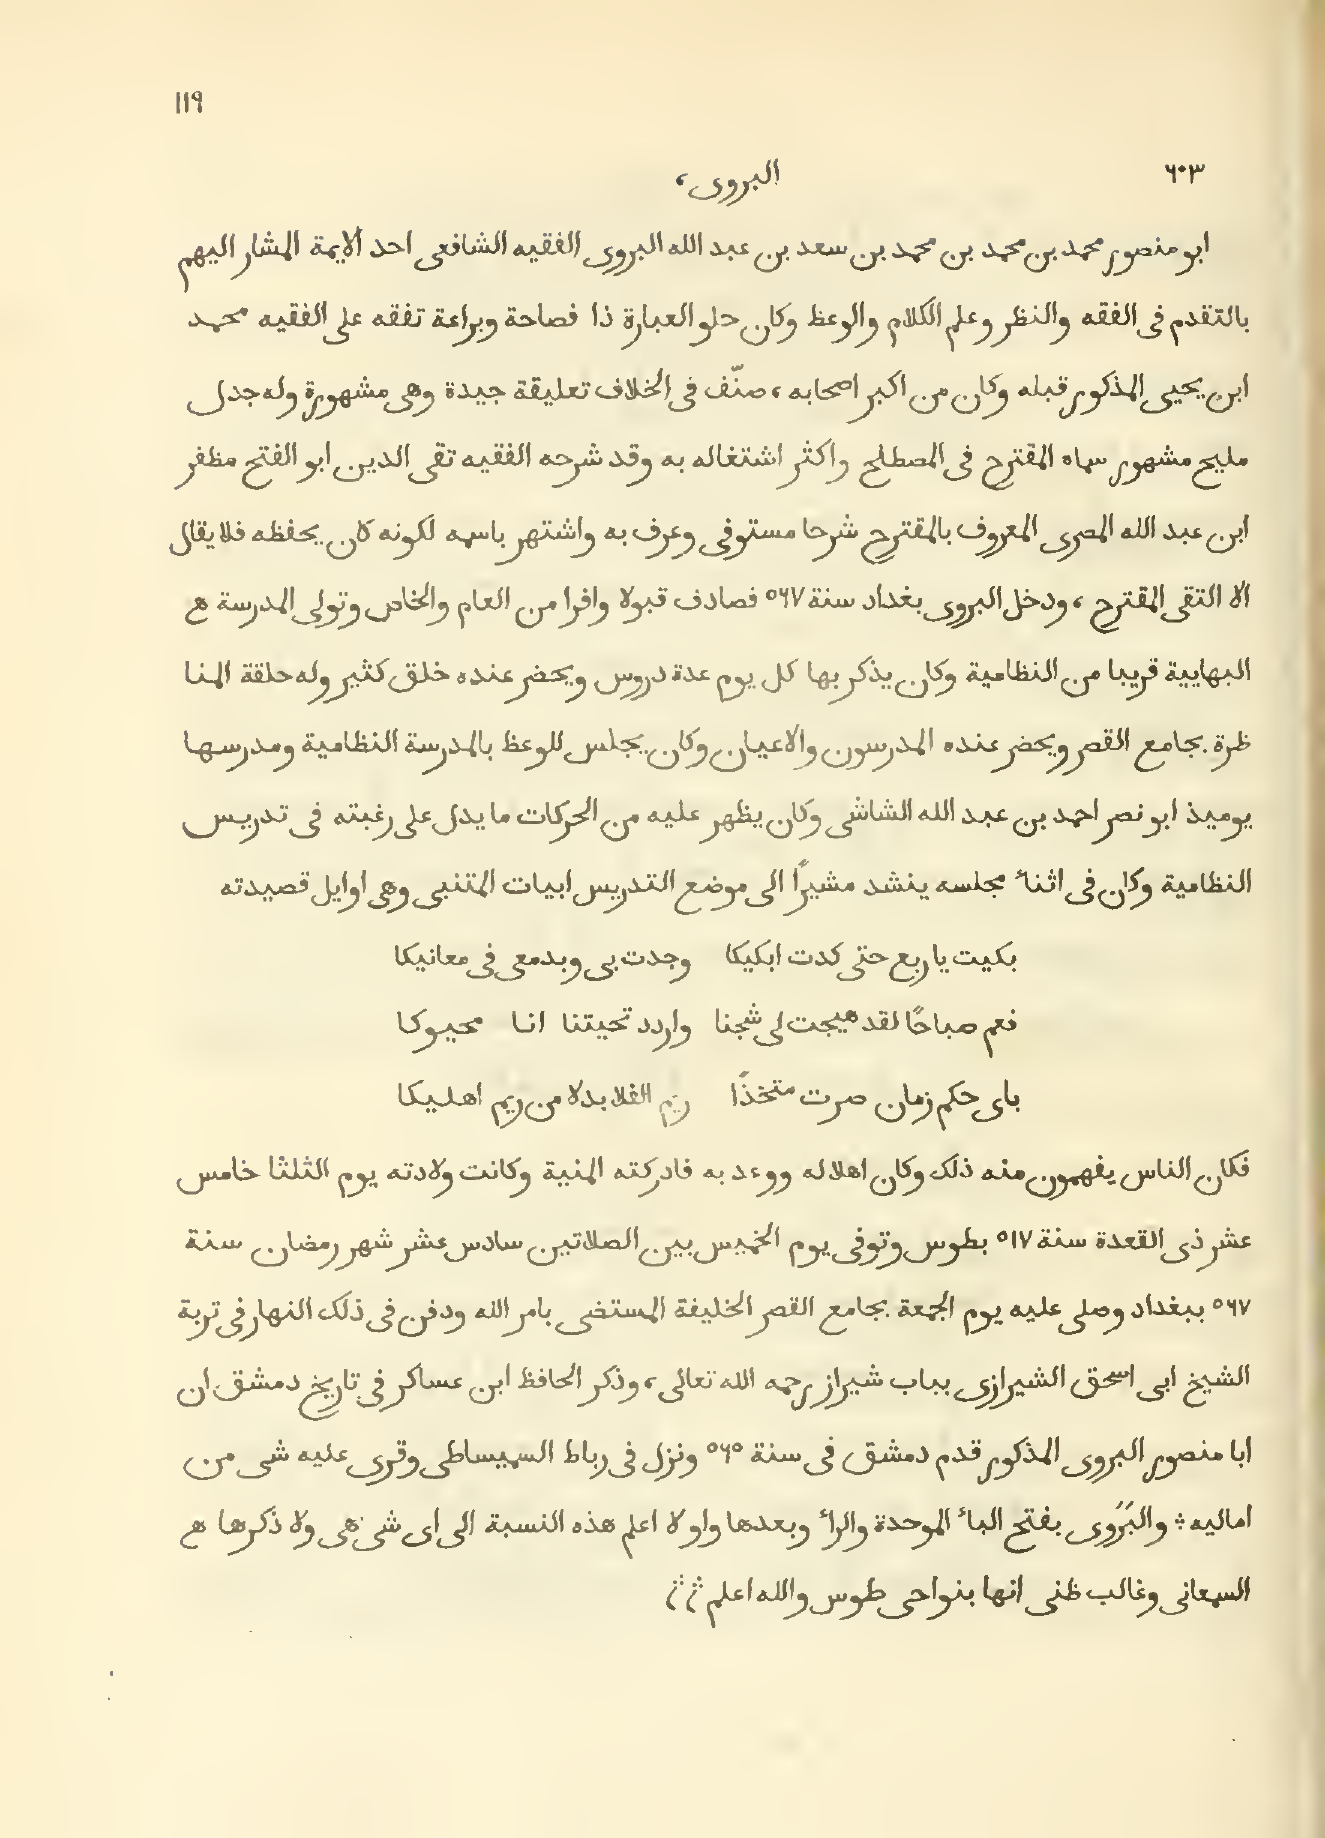 ١١٩
٦٠٣ البروى،
ابو منصور محمد بن محمد بن محمد بن سعد بن عبد الله البروى الفقيه الشافعى احد الايمة المشار اليهم
بالتقدم فى الفقه والنظر وعلم الكلام والوعظ وكان حلو العبارة ذا فصاحة وبراعة تفقه على الفقيه محمد
ابن يحيى المذكور قبله وكان من اكبر اصحابه، صنّف فى الخلاف تعليقة جيدة وهى مشهورة وله جدل
مليح مشهور سماه المقترح فى المصطلح واكثر اشتغاله به وقد شرحه الفقيه تقى الدين ابو الفتح مظفر
ابن عبد الله المصرى المعروف بالمقترح شرحا مستوفى وعرف به واشتهر باسمه لكونه كان يحفظه فلا يقال
الا التقى المقترح، ودخل البروى بغداد سنة ٥٦٧ فصادف قبولا وافرا من العام والخاص وتولى المدرسة ه
البهايية قريبا من النظامية وكان يذكر بها كل يوم عدة دروس ويحضر عنده خلق كثير وله حلقة المنا
ظرة بجامع القصر ويحضر عنده المدرسون والاعيان وكان يجلس للوعظ بالمدرسة النظامية ومدرسها
يوميذ ابو نصر احمد بن عبد الله الشاشى وكان يظهر عليه من الحركات ما يدل على رغبته فى تدريس
النظامية وكان فى اثنأ مجلسه ينشد مشيرًا الى موضع التدريس ابيات المتنبى وهى اوايل قصيدته
بكيت يا ربع حتى كدت ابكيكا وجدت بى وبدمعى فى معانيكا
فعم صباحًا لقد هيجت لى شجنا واردد تحيتنا انا محيوكا
باى حكم زمان صرت متخذًا ريم الفلا بدلا من ريم اهليكا
فكان الناس يفهمون منه ذلك وكان اهلا له ووعد به فادركته المنية وكانت ولادته يوم الثلثا خامس
عشر ذى القعدة سنة ٥١٧ بطوس وتوفى يوم الخميس بين الصلاتين سادس عشر شهر رمضان سنة
٥٦٧ ببغداد وصلى عليه يوم الجمعة بجامع القصر الخليفة المستضى بامر الله ودفن فى ذلك النهار فى تربة
الشيخ ابى اسحق الشيرازى بباب شيراز رحمه الله تعالى، وذكر الحافظ ابن عساكر فى تاريخ دمشق ان
ابا منصور البروى المذكور قدم دمشق فى سنة ٥٦٥ ونزل فى رباط السميساطى وقرى عليه شى من
اماليه ؞ والبَرَوى بفتح البأ الموحدة والرأ وبعدها واو لا اعلم هذه النسبة الى اى شى هى ولا ذكرها ه
السمعانى وغالب ظنى انها بنواحى طوس والله اعلم